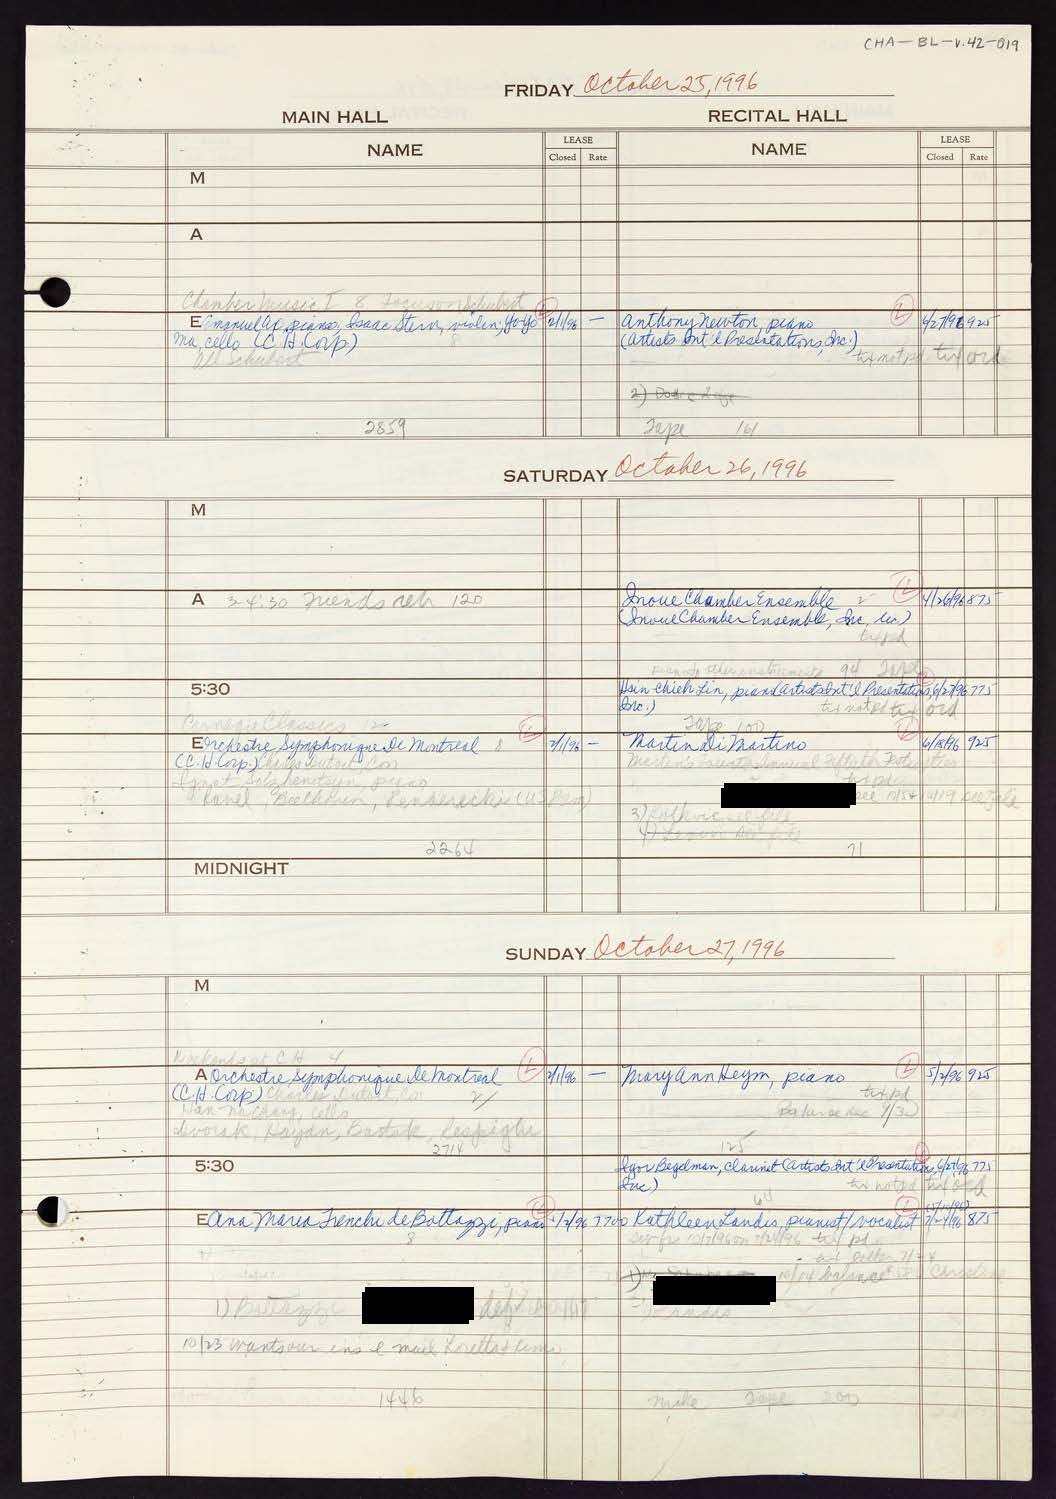 CHA-BL-v.42-019
FRIDAY October 25, 1996
MAIN HALL
RECITAL HALL
NAME
LEASE
Closed Rate
NAME
LEASE
Closed Rate
M
A
Chamber Music I 8 Focus on Schubert
E Emanuel Ax, piano, Isaac Stern, violin, Yo-Yo 2/1/96 —
Ma, cello (C.H. Corp) 8
All Schubert
2859
L
Anthony Newton, piano 6/27/96 925
(Artists Int'l Presentations, Inc.)
tix not pd tix ord
2)
Tape 161
SATURDAY October 26, 1996
M
A 3-4:30 Friends reh 120
5:30
Carnegie Classics 12
E Orchestre Symphonique De Montreal 8 2/1/96 —
(C.H. Corp) Charles Dutoit, Con
Ignat Solzhenitsyn, piano
Ravel, Beethoven, Penderecki (US Prem)
2264
MIDNIGHT
L
Inoue Chamber Ensemble 2 4/26/96 875
(Inoue Chamber Ensemble, Inc, )
tix pd
piano & other instruments 94 Tape
Hsin Chieh Lin, piano (Artists Int'l Presentations, 6/27/96 775
Inc.) tix not pd tix ord
Tape 100
Martin Di Martino 6/18/96 925
Annual Fiftyth
tix pd
see 10/19 see file
3) see file
4) see file
71
SUNDAY October 27, 1996
M
Weekends at C.H. 4
A Orchestre Symphonique De Montreal 2/1/96 —
(C.H. Corp) Charles Dutoit, Con 2/
Han-Na Chang, Cello
Dvorak, Haydn, Bartok, Respighi
2714
5:30
E Ana Maria Trenchi de Bottazzi, piano 7700
8
1) Bottazzi
10/23 wants our ins e mail Loretta &
1446
L
Mary Ann Heym, piano 5/2/96 925
tix pd
Balance due 9/30
125
Igor Begelman, Clarinet (Artists Int'l Presentations, 6/27/96 775
Inc) tix not pd tix ord
64
Kathleen Landis, pianist/vocalist 7/24/96 875
tix pd
1) 10/14 balance Christine
Landis
Mike Tape 200